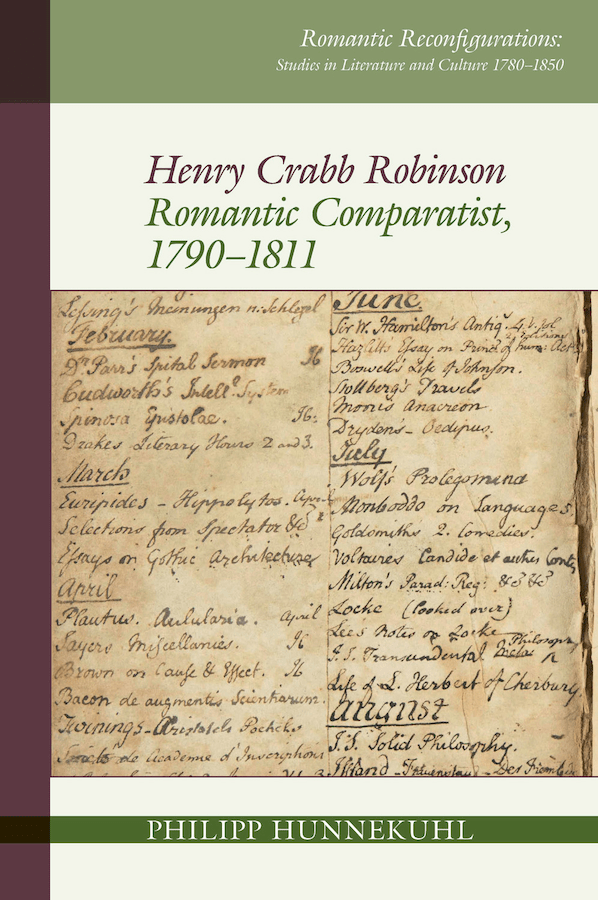 Romantic Reconfigurations:
Studies in Literature and Culture 1780–1850
Henry Crabb Robinson
Romantic Comparatist,
1790–1811
Lessing's Meinungen n: Schlegel
February.
Dr. Parr's Spital Sermon
Cudworth's Intellˡ. System
Spinosa Epistolae.
Drakes Literary Hours 2 and 3.
March
Euripides – Hippolytos. April
Selections from Spectator &c
Essays on Gothic Architecture
April
Plautus. Aulularia. April
Sayers Miscellanies.
Brown on Cause & Effect.
Bacon de augmentis Scientiarum.
Twinings – Aristotels Poetics
de Academie d'Inscriptions
June.
Sir W. Hamilton's Antiq. 4. V. fol
Hazlitts Essay on Princ of hum: Act
Boswells Life of Johnson.
Stollberg's Travels
Moris Anacreon
Drydens – Oedipus.
July
Wolf's Prolegomena
Monboddo on Languages
Goldsmiths 2. Comedies.
Voltaires Candide et autres Cont
Milton's Parad: Reg: &c &c
Locke (looked over)
Lee's Notes on Locke
I.S. Transcendental Philosophy
Life of L. Herbert of Cherbury
August
I.S. Solid Philosophy.
Iffland – Der Fremde
PHILIPP HUNNEKUHL